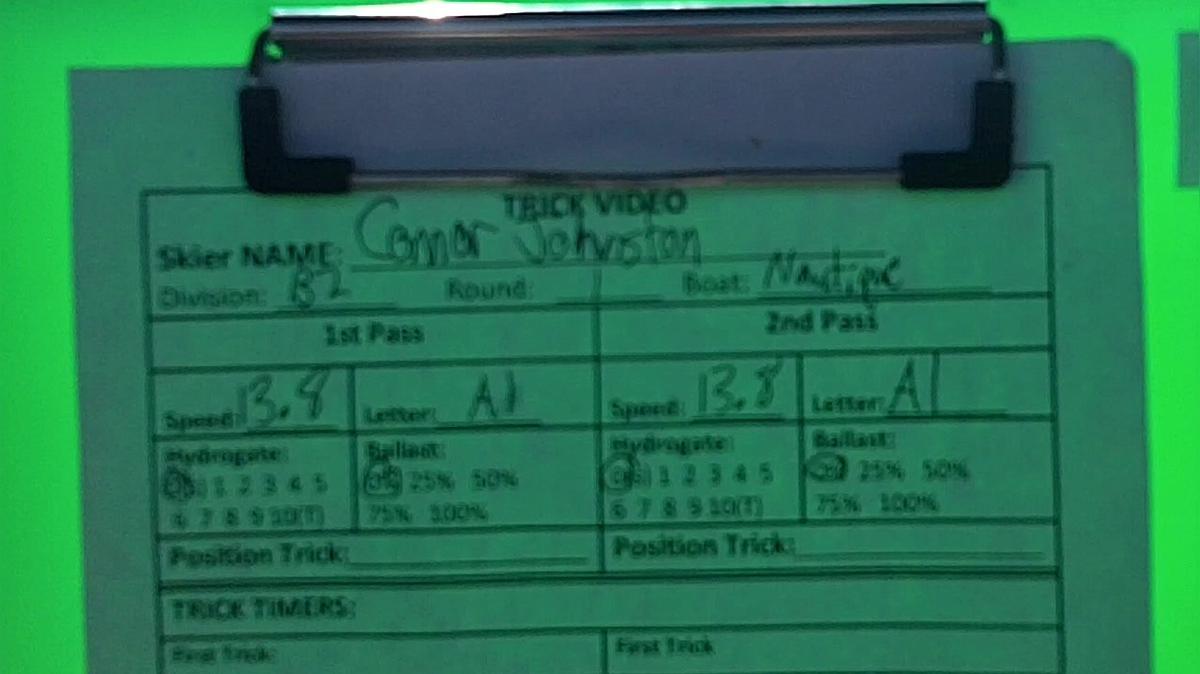 TRICK VIDEO
Skier NAME: Connor Johnston
Division: B2 Round: Boat: Nautique
1st Pass 2nd Pass
Speed: 13.8 Letter: A1 Speed: 13.8 Letter: A1
Hydrogate: Ballast: Hydrogate: Ballast:
1 2 3 4 5 0% 25% 50% 1 2 3 4 5 25% 50%
6 7 8 9 10(T) 75% 100% 6 7 8 9 10(T) 75% 100%
Position Trick: Position Trick:
TRICK TIMERS:
First Trick: First Trick